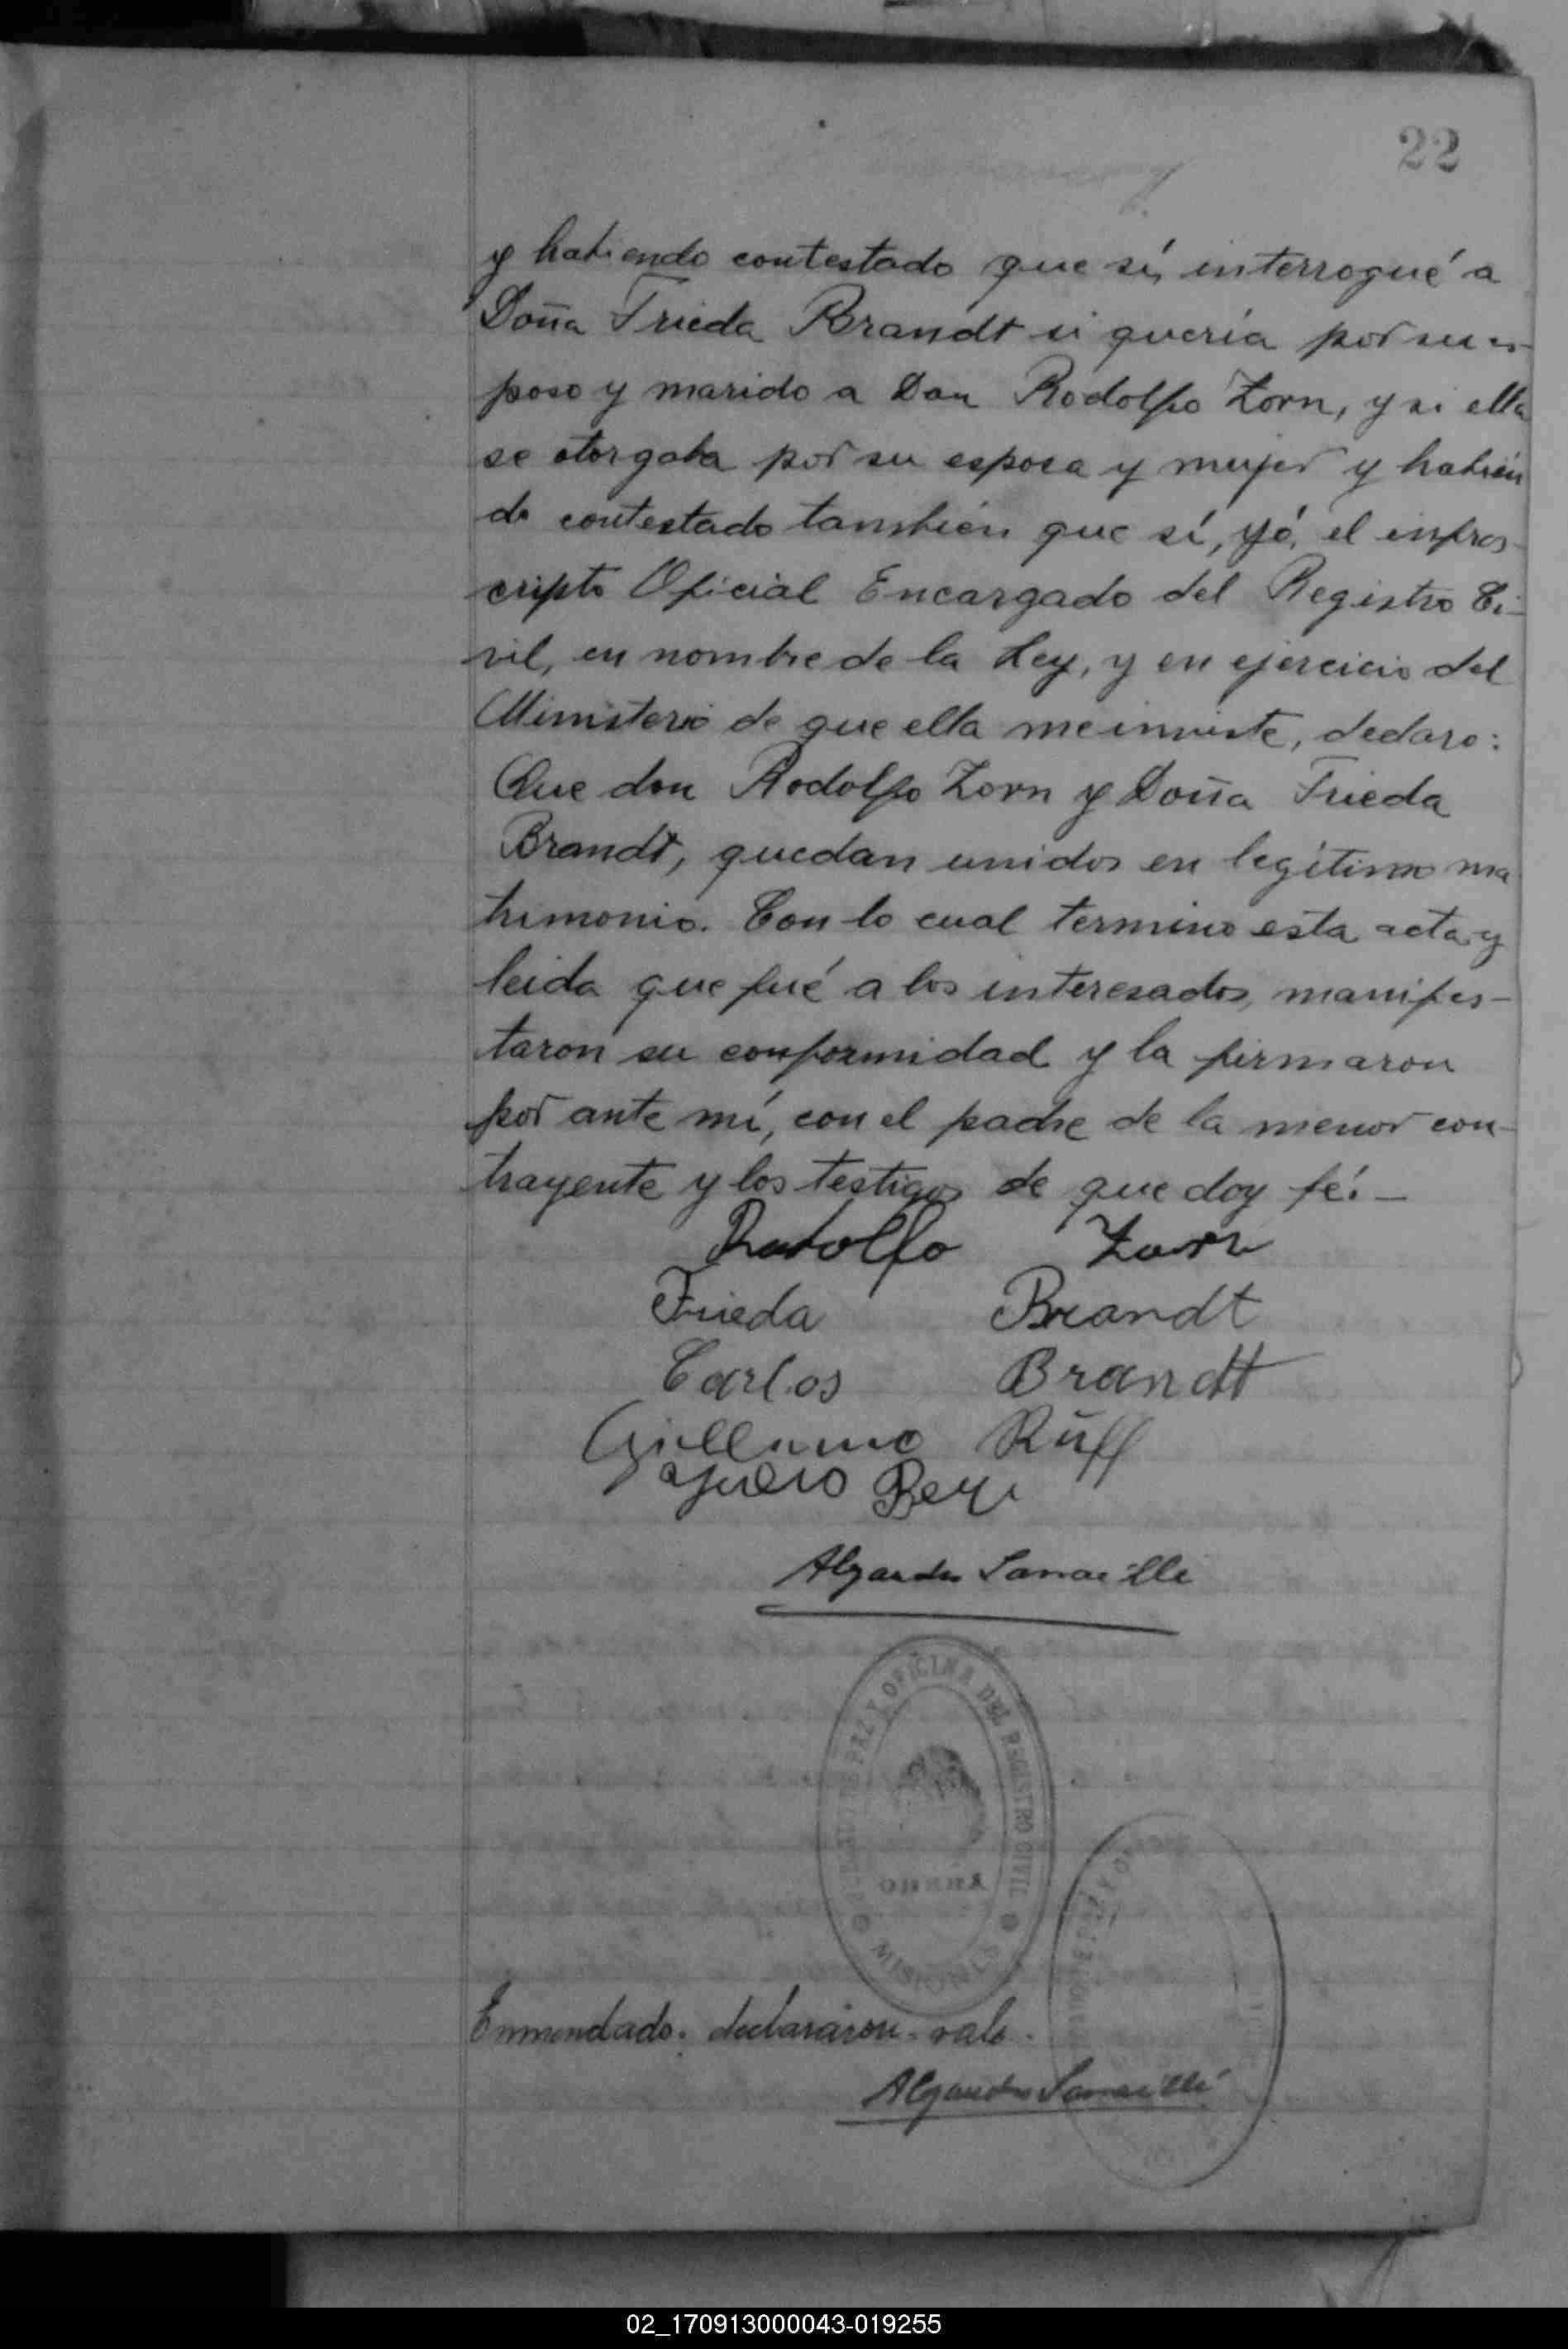 22
y habiendo contestado que sí, interrogué a
Doña Frieda Brandt si quería por su es-
poso y marido a Don Rodolfo Zorn, y si ella
se otorgaba por su esposa y mujer y habien
do contestado también que sí, yó, el infras-
cripto Oficial Encargado del Registro Ci-
vil, en nombre de la Ley, y en ejercicio del
Ministerio de que ella me inviste, declaro:
Que don Rodolfo Zorn y Doña Frieda
Brandt, quedan unidos en legítimo ma
trimonio. Con lo cual termino esta acta y
leida que fué a los interesados, manifes-
taron su conformidad y la firmaron
por ante mí, con el padre de la menor con-
trayente y los testigos de que doy fé.-
Rodolfo Zorn
Frieda Brandt
Carlos Brandt
Guillermo Ruff
OFICINA DEL REGISTRO CIVIL
MISIONES
Enmendado. declararon - vale.
02_170913000043-019255